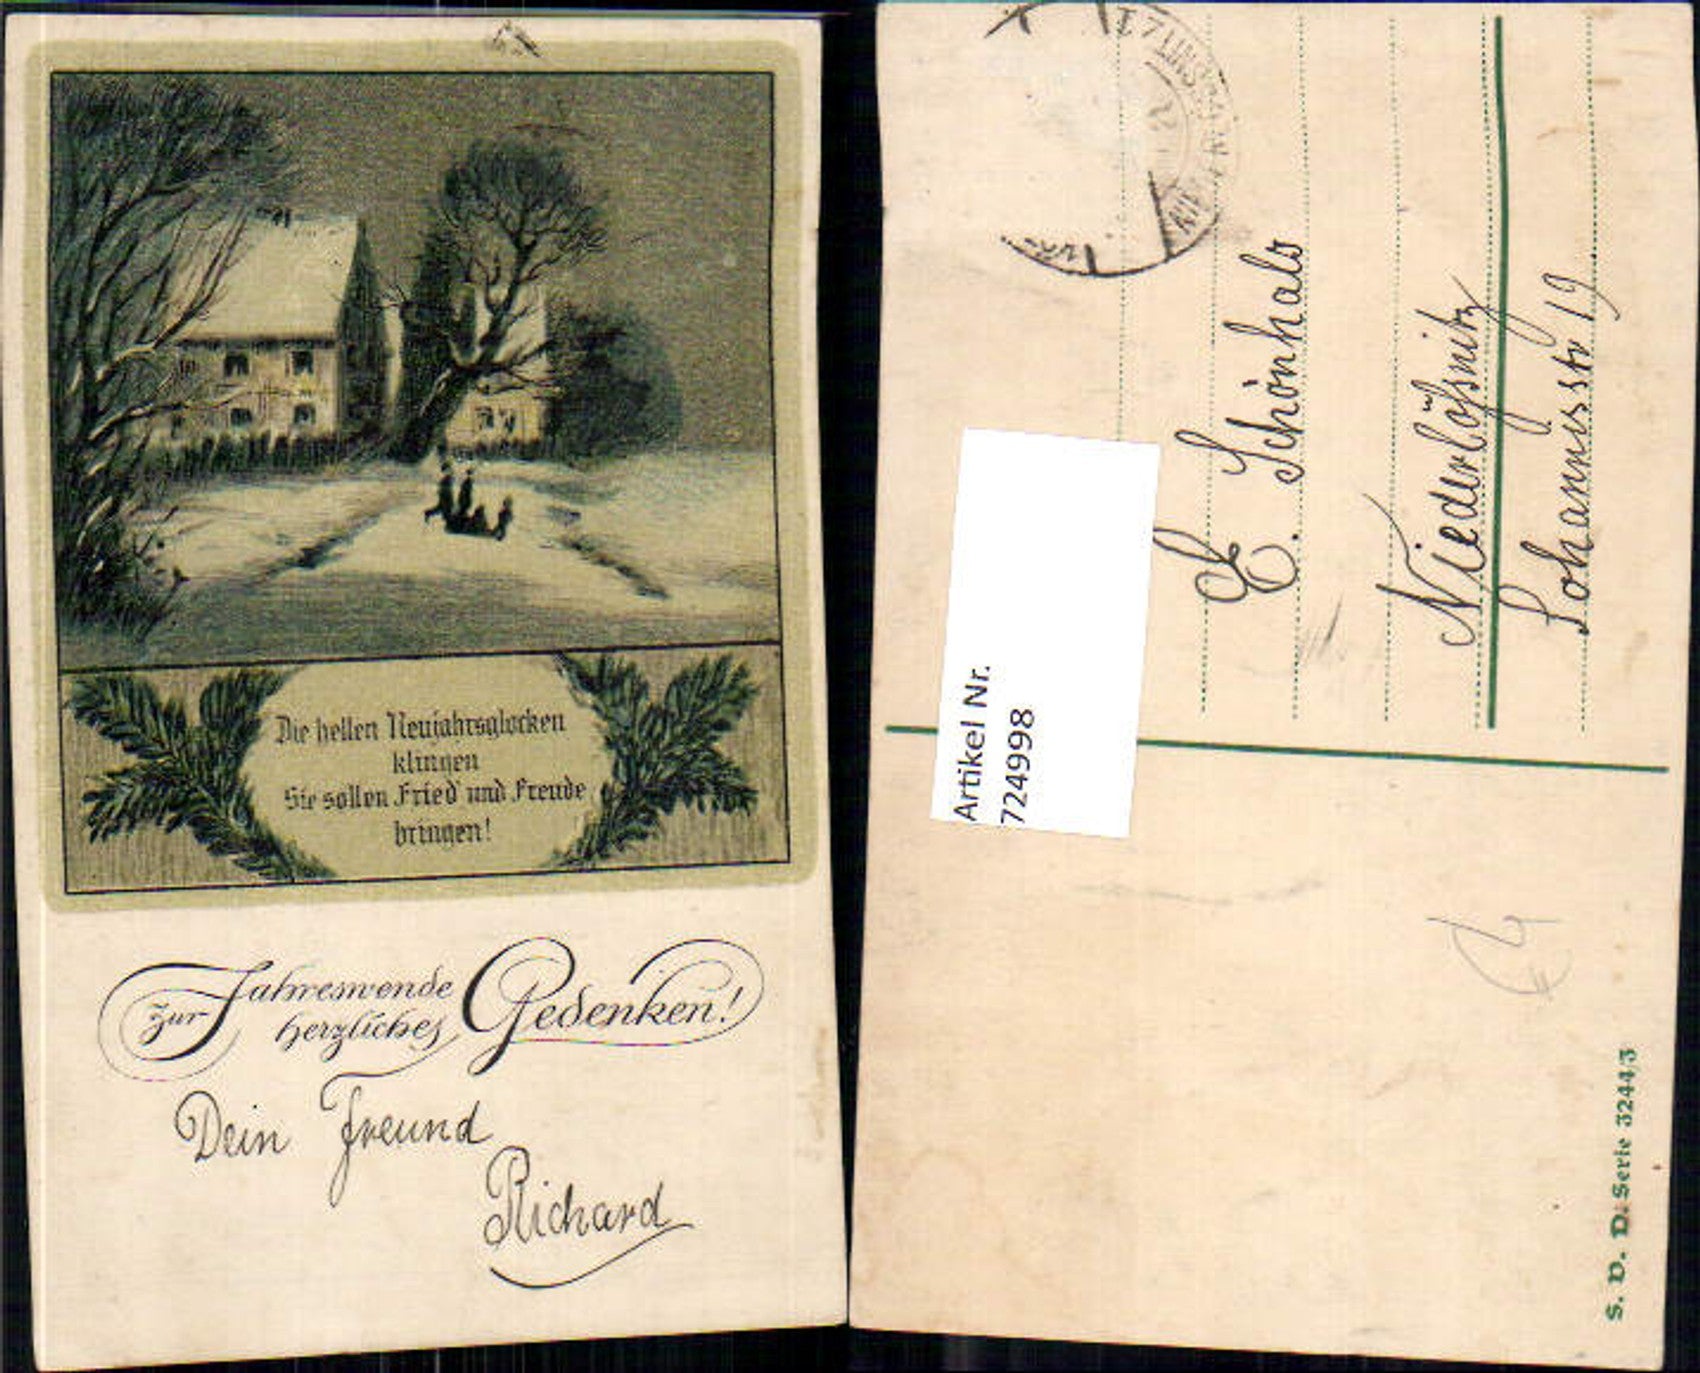 Die hellen Neujahrsglocken
klingen
Sie sollen Fried und Freude
bringen!
zur Jahreswende
herzliches Gedenken!
Dein Freund
Richard
E. Schönhals
Niederlößnitz
Johannesstr 19
Artikel Nr.
7249998
S. V. D. Serie 3244/3